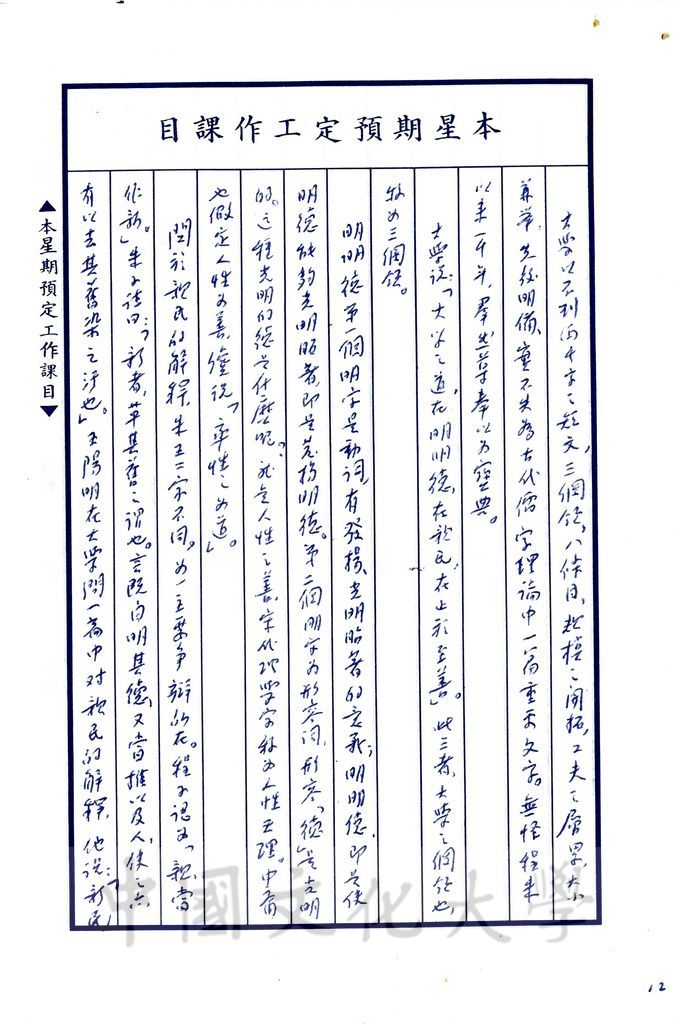 本星期預定工作課目
大學以不到兩千字之短文，三個領，八條目，規模之開拓，工夫之層累，大小
兼舉，先後明備，實不失為古代儒家理論中一篇重要文字。無怪程朱
以來一千年，群出尊奉以為寶典。
大學說：「大學之道，在明明德，在親民，在止於至善」。此三者，大學之綱領也，
較為三個領。
明明德第一個明字是動詞，有發揚、光明昭著的意義；明明德，即是使
明德能夠光明昭著，即是発揚明德。第二個明字為形容詞，形容「德」是光明
的。這種光明的德是什麼呢？就是人性之善，宋代理學家稱為人性天理。中庸
也假定人性為善，僅說「率性之為道」。
關於親民的解釋，朱王二家不同，為一主要爭辯所在。程子認為「親，當
作新。」朱子註曰：「新者，革其舊之謂也。言既自明其德，又當推以及人，使亦
有以去其舊染之汙也」。王陽明在大學問一篇中對親民的解釋，他說：「新民，
▲本星期預定工作課目▼
中國文化大學
12